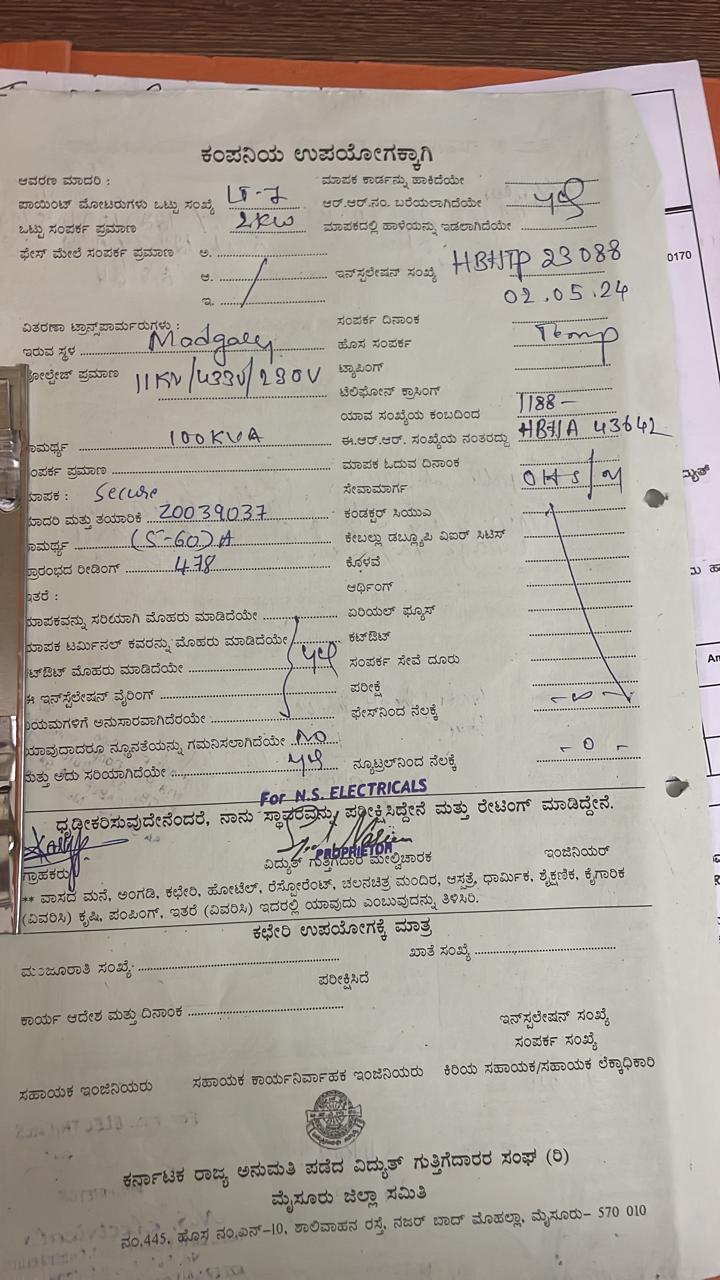 ಕಂಪನಿಯ ಉಪಯೋಗಕ್ಕಾಗಿ
ಆವರಣ ಮಾದರಿ : ಮಾಪಕ ಕಾರ್ಡನ್ನು ಹಾಕಿದೆಯೇ
ಪಾಯಿಂಟ್ ಮೋಟರುಗಳು ಒಟ್ಟು ಸಂಖ್ಯೆ LT-7 ಆರ್.ಆರ್.ನಂ. ಬರೆಯಲಾಗಿದೆಯೇ yes
ಒಟ್ಟು ಸಂಪರ್ಕ ಪ್ರಮಾಣ 2KW ಮಾಪಕದಲ್ಲಿ ಹಾಳೆಯನ್ನು ಇಡಲಾಗಿದೆಯೇ
ಫೇಸ್ ಮೇಲೆ ಸಂಪರ್ಕ ಪ್ರಮಾಣ ಅ.
ಆ. ಇನ್‌ಸ್ಟಲೇಷನ್ ಸಂಖ್ಯೆ HBHTP 23088
ಇ. 02.05.24
ವಿತರಣಾ ಟ್ರಾನ್ಸ್‌ಪಾರ್ಮರುಗಳು : ಸಂಪರ್ಕ ದಿನಾಂಕ
ಇರುವ ಸ್ಥಳ ಹೊಸ ಸಂಪರ್ಕ Temp
ವೋಲ್ಟೇಜ್ ಪ್ರಮಾಣ 11KV/433V/230V ಟ್ಯಾಪಿಂಗ್
ಟೆಲಿಫೋನ್ ಕ್ರಾಸಿಂಗ್
ಯಾವ ಸಂಖ್ಯೆಯ ಕಂಬದಿಂದ 1188-
ಾಮರ್ಥ್ಯ 100KVA ಈ.ಆರ್.ಆರ್. ಸಂಖ್ಯೆಯ ನಂತರದ್ದು HBHA 43642
ಂಪರ್ಕ ಪ್ರಮಾಣ ಮಾಪಕ ಓದುವ ದಿನಾಂಕ
ಮಾಪಕ : Secure ಸೇವಾಮಾರ್ಗ
ಮಾದರಿ ಮತ್ತು ತಯಾರಿಕೆ 20039037 ಕಂಡಕ್ಟರ್ ಸಿಯುಎ
ಾಮರ್ಥ್ಯ (5-60)A ಕೇಬಲ್ಲು ಡಬ್ಲ್ಯೂಪಿ ವಿಐರ್ ಸಿಟಿಸ್
ಪ್ರಾರಂಭದ ರೀಡಿಂಗ್ 478 ಕೊಳವೆ
ಇತರೆ : ಆರ್ಥಿಂಗ್
ಮಾಪಕವನ್ನು ಸರಿಯಾಗಿ ಮೊಹರು ಮಾಡಿದೆಯೇ ಏರಿಯಲ್ ಫ್ಯೂಸ್
ಮಾಪಕ ಟರ್ಮಿನಲ್ ಕವರನ್ನು ಮೊಹರು ಮಾಡಿದೆಯೇ yes ಕಟ್‌ಔಟ್
ಕಟ್‌ಔಟ್ ಮೊಹರು ಮಾಡಿದೆಯೇ ಸಂಪರ್ಕ ಸೇವೆ ದೂರು
ಈ ಇನ್‌ಸ್ಟಲೇಷನ್ ವೈರಿಂಗ್ ಪರೀಕ್ಷೆ
ನಿಯಮಗಳಿಗೆ ಅನುಸಾರವಾಗಿದೆರಯೇ ಫೇಸ್‌ನಿಂದ ನೆಲಕ್ಕೆ
ಯಾವುದಾದರೂ ನ್ಯೂನತೆಯನ್ನು ಗಮನಿಸಲಾಗಿದೆಯೇ NO
ಮತ್ತು ಅದು ಸರಿಯಾಗಿದೆಯೇ yes ನ್ಯೂಟ್ರಲ್‌ನಿಂದ ನೆಲಕ್ಕೆ - 0 -
For N.S. ELECTRICALS
ಧೃಡೀಕರಿಸುವುದೇನೆಂದರೆ, ನಾನು ಸ್ಥಾವರವನ್ನು ಪರೀಕ್ಷಿಸಿದ್ದೇನೆ ಮತ್ತು ರೇಟಿಂಗ್ ಮಾಡಿದ್ದೇನೆ.
PROPRIETOR
ಗ್ರಾಹಕರು ವಿದ್ಯುತ್ ಗುತ್ತಿಗೆದಾರ ಮೇಲ್ವಿಚಾರಕ ಇಂಜಿನಿಯರ್
** ವಾಸದ ಮನೆ, ಅಂಗಡಿ, ಕಛೇರಿ, ಹೋಟೆಲ್, ರೆಸ್ಟೋರೆಂಟ್, ಚಲನಚಿತ್ರ ಮಂದಿರ, ಆಸ್ಪತ್ರೆ, ಧಾರ್ಮಿಕ, ಶೈಕ್ಷಣಿಕ, ಕೈಗಾರಿಕ
(ವಿವರಿಸಿ) ಕೃಷಿ, ಪಂಪಿಂಗ್, ಇತರೆ (ವಿವರಿಸಿ) ಇದರಲ್ಲಿ ಯಾವುದು ಎಂಬುವುದನ್ನು ತಿಳಿಸಿರಿ.
ಕಛೇರಿ ಉಪಯೋಗಕ್ಕೆ ಮಾತ್ರ
ಮಂಜೂರಾತಿ ಸಂಖ್ಯೆ: ಖಾತೆ ಸಂಖ್ಯೆ
ಪರೀಕ್ಷಿಸಿದೆ
ಕಾರ್ಯ ಆದೇಶ ಮತ್ತು ದಿನಾಂಕ
ಇನ್‌ಸ್ಟಲೇಷನ್ ಸಂಖ್ಯೆ
ಸಂಪರ್ಕ ಸಂಖ್ಯೆ
ಸಹಾಯಕ ಇಂಜಿನಿಯರು ಸಹಾಯಕ ಕಾರ್ಯನಿರ್ವಾಹಕ ಇಂಜಿನಿಯರು ಕಿರಿಯ ಸಹಾಯಕ/ಸಹಾಯಕ ಲೆಕ್ಕಾಧಿಕಾರಿ
ಕರ್ನಾಟಕ ರಾಜ್ಯ ಅನುಮತಿ ಪಡೆದ ವಿದ್ಯುತ್ ಗುತ್ತಿಗೆದಾರರ ಸಂಘ (ರಿ)
ಮೈಸೂರು ಜಿಲ್ಲಾ ಸಮಿತಿ
ನಂ.445, ಹೊಸ ನಂ.ಎನ್-10, ಶಾಲಿವಾಹನ ರಸ್ತೆ, ನಜರ್ ಬಾದ್ ಮೊಹಲ್ಲಾ, ಮೈಸೂರು- 570 010
0170